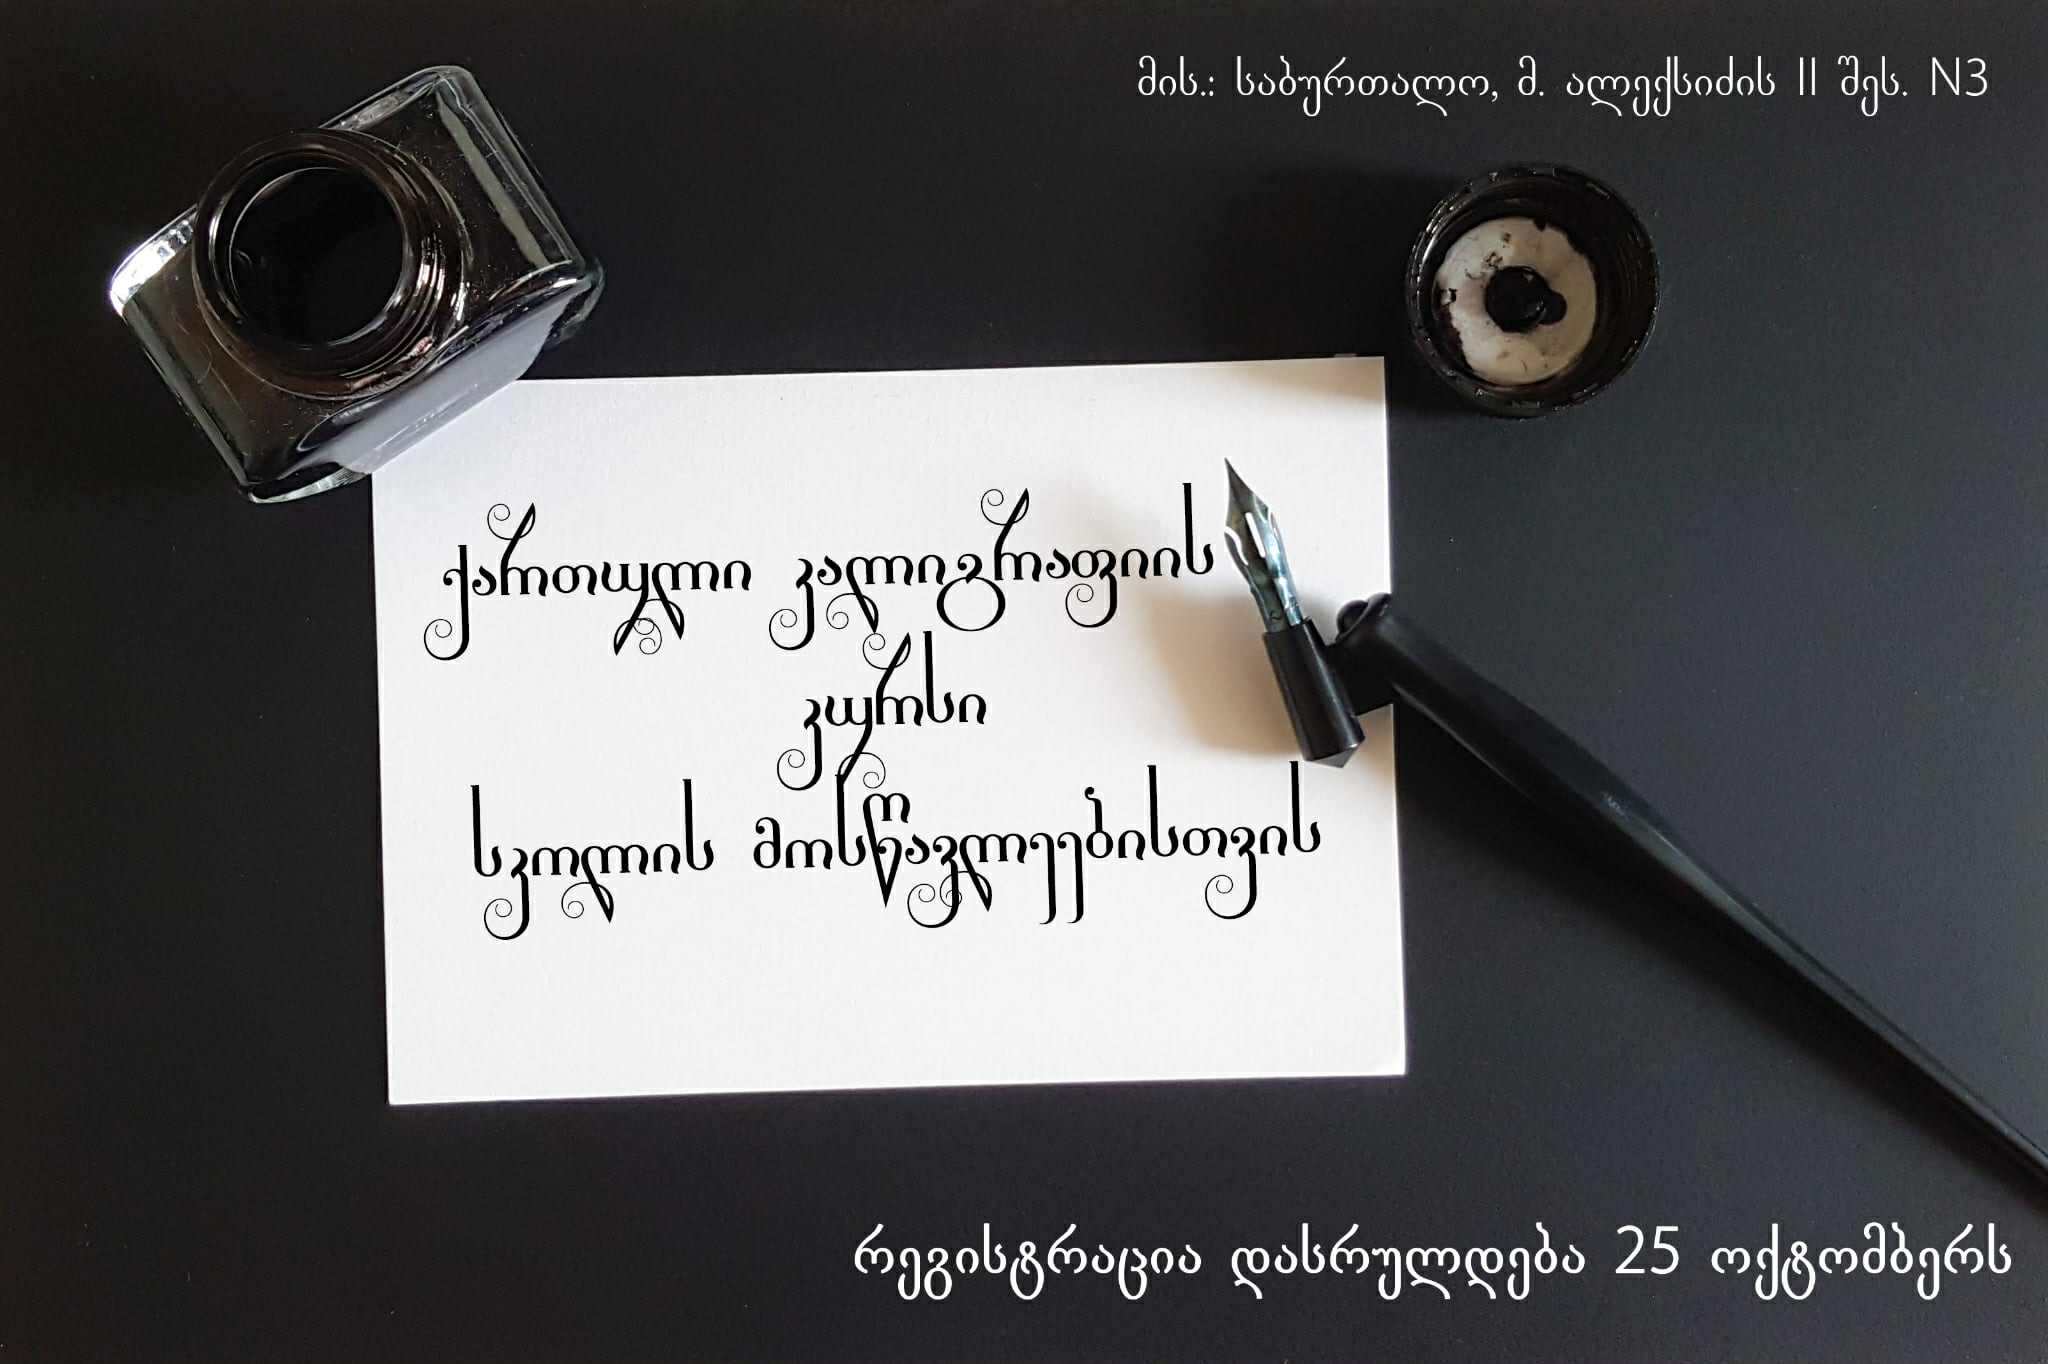 მის.: საბურთალო, მ. ალექსიძის II შეს. N3
ქართული კალიგრაფიის
კურსი
სკოლის მოსწავლეებისთვის
რეგისტრაცია დასრულდება 25 ოქტომბერს